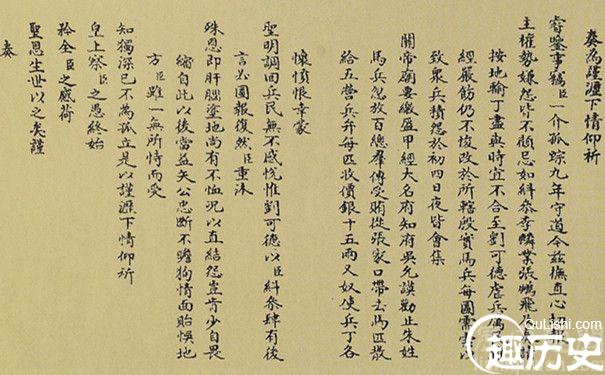 奏為瀝下情仰祈
睿鑒事竊臣一介孤踪九年守道今兹撫直心
主權勢嫌怨皆不顧忌如糾叅李麟業張鵬飛
按地輸丁盡與時宜不合至劉可德虐兵
經嚴飭仍不悛改於所轄殷實馬兵每圖需索以
致衆兵積怨於初四日夜皆會集
關帝廟要繳盔甲經大名府知府吳允謨勸止朱姓
馬兵忽放百總羣傳受賄從張家口帶去馬匹散
給五營兵弁每匹收價銀十五兩又奴使兵丁各
懷憤恨幸蒙
聖明調回兵民無不感悦惟劉可德以臣糾叅肆有後
言必圖報復然臣重沐
殊恩即肝腦塗地尚有不恤況以直結怨豈肯少自畏
縮自此以後當益矢公忠斷不瞻狥情面貽悞地
方臣雖一無所恃而受
知獨深已不為孤立是以謹瀝下情仰祈
皇上察臣之愚終始
矜全臣之感荷
聖恩生世以之矣謹
奏
QuLishi.com
趣历史